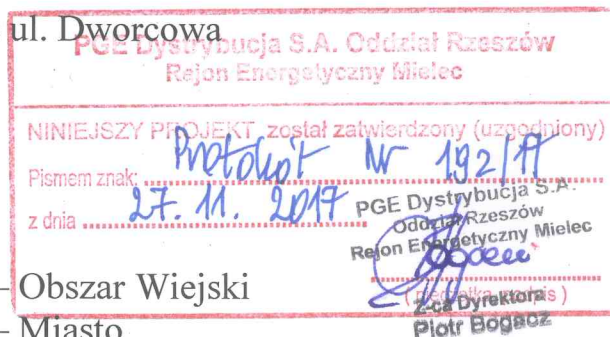 ul. Dworcowa
PGE Dystrybucja S.A. Oddział Rzeszów
Rejon Energetyczny Mielec
NINIEJSZY PROJEKT został zatwierdzony (uzgodniony)
Pismem znak: Protokół Nr 192/17
z dnia 27. 11. 2017
PGE Dystrybucja S.A.
Oddział Rzeszów
Rejon Energetyczny Mielec
z-ca Dyrektora
Piotr Bogacz
– Obszar Wiejski
– Miasto